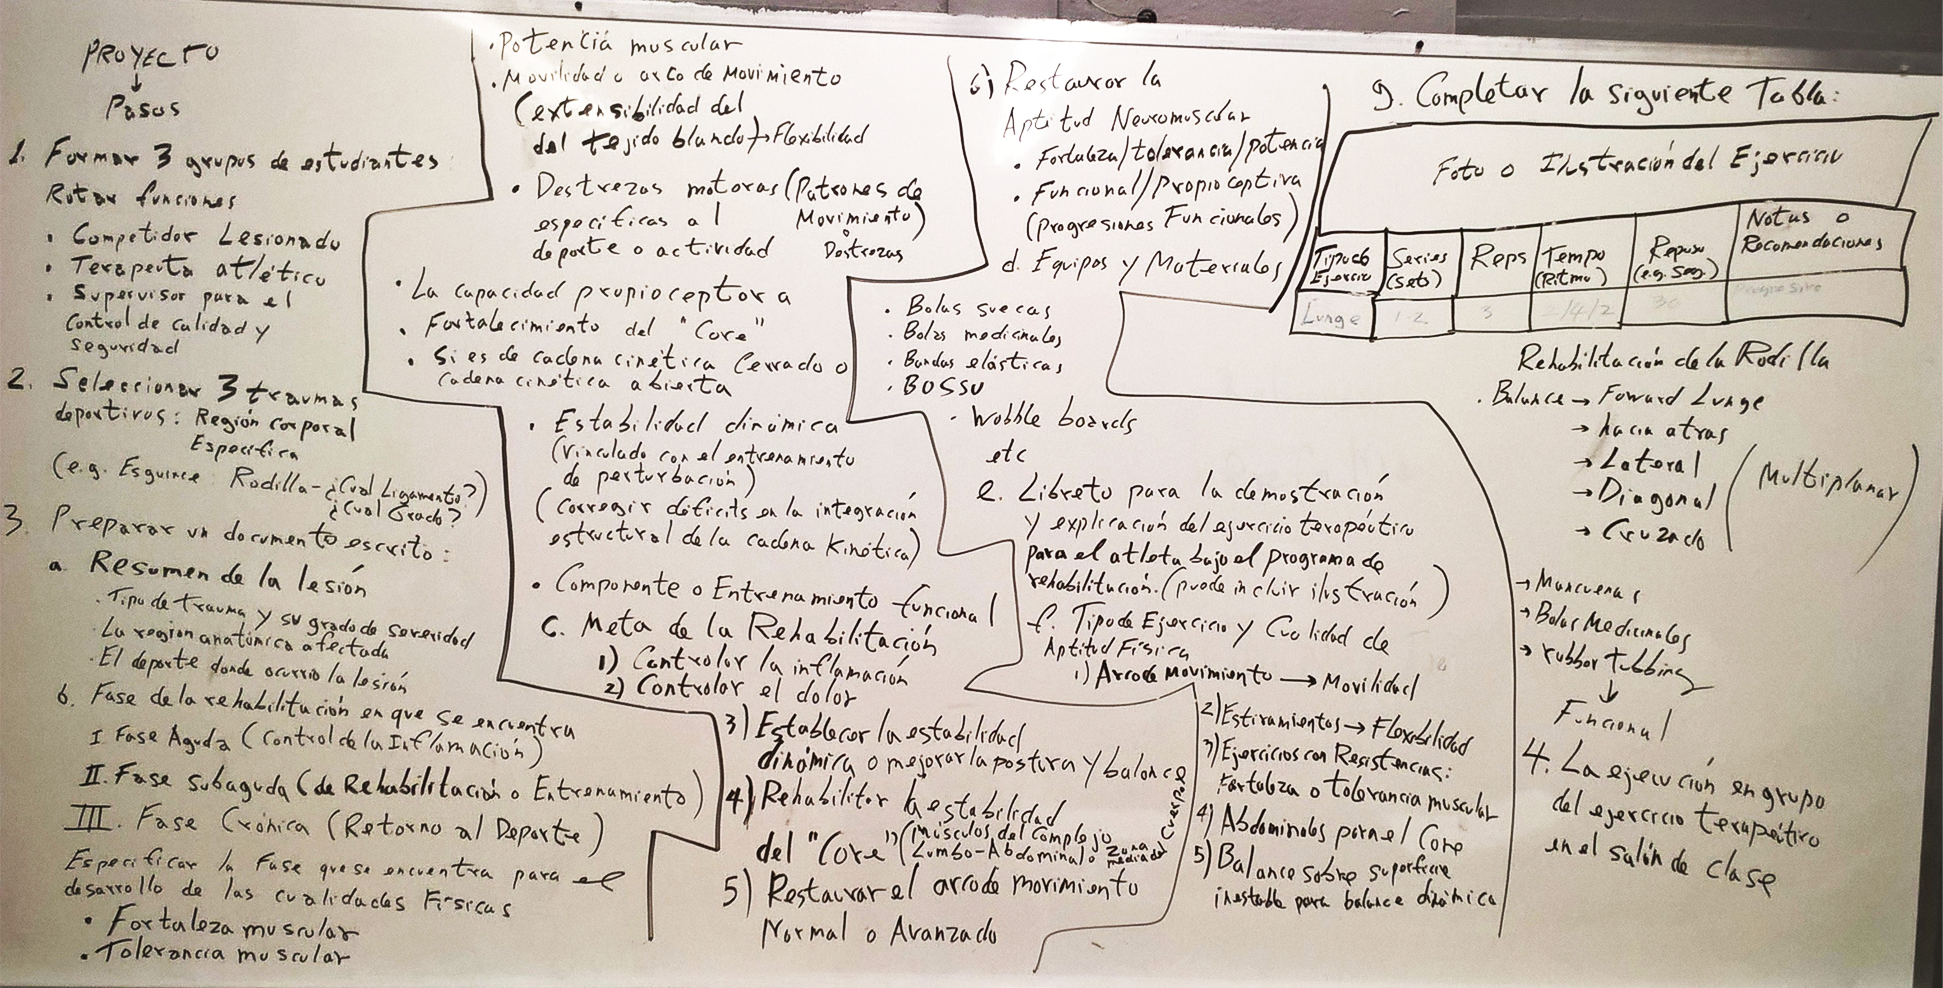 PROYECTO
↓
Pasos
1. Formar 3 grupos de estudiantes:
Rotar funciones
• Competidor Lesionado
• Terapeuta atlético
• Supervisor para el
Control de calidad y
seguridad
2. Seleccionar 3 traumas
deportivos: Región corporal
Específica
(e.g. Esguince: Rodilla - ¿Cual Ligamento?)
¿Cual Grado?
3. Preparar un documento escrito:
a. Resumen de la lesión
• Tipo de trauma y su grado de severidad
• La región anatómica afectada
• El deporte donde ocurrio la lesión
b. Fase de la rehabilitación en que se encuentra
I. Fase Aguda (Control de la Inflamación)
II. Fase Subaguda (de Rehabilitación o Entrenamiento)
III. Fase Crónica (Retorno al Deporte)
Especificar la Fase que se encuentra para el
desarrollo de las cualidades Físicas
• Fortaleza muscular
• Tolerancia muscular
• Potencia muscular
• Movilidad o arco de Movimiento
(extensibilidad del
del tejido blando) → Flexibilidad
• Destrezas motoras (Patrones de
específicas al Movimiento)
o
deporte o actividad Destrezas
• La capacidad propioceptora
• Fortalecimiento del "Core"
• Si es de cadena cinética Cerrado o
cadena cinética abierta
• Estabilidad dinámica
(vinculado con el entrenamiento
de perturbación)
(corregir déficits en la integración
estructural de la cadena Kinética)
• Componente o Entrenamiento funcional
c. Meta de la Rehabilitación
1) Controlar la inflamación
2) Controlar el dolor
3) Establecer la estabilidad
dinámica o mejorar la postura y balance
4) Rehabilitar la estabilidad
del "Core" (músculos del Complejo
Lumbo-Abdominal o zona
media del Cuerpo)
5) Restaurar el arco de movimiento
Normal o Avanzado
6) Restaurar la
Aptitud Neuromuscular
• Fortaleza/tolerancia/potencia
• Funcional/Propioceptiva
(progresiones Funcionales)
d. Equipos y Materiales
• Bolas suecas
• Bolas medicinales
• Bandas elásticas
• BOSSU
• Wobble boards
etc
e. Libreto para la demostración
y explicación del ejercicio terapéutico
para el atleta bajo el programa de
rehabilitación. (puede incluir ilustración)
f. Tipo de Ejercicio y Cualidad de
Aptitud Física
1) Arco de Movimiento → Movilidad
2) Estiramientos → Flexibilidad
3) Ejercicios con Resistencias:
Fortaleza o tolerancia muscular
4) Abdominales para el Core
5) Balance sobre superficie
inestable para balance dinámica
g. Completar la siguiente Tabla:
Foto o Ilustración del Ejercicio
Tipo de Ejercicio
Series (Sets)
Reps
Tempo (Ritmo)
Reposo (e.g. Seg.)
Notas o Recomendaciones
Lunge
1-2
3
/4/2
30
Rehabilitación de la Rodilla
• Balance → Foward Lunge
→ hacia atras
→ Lateral
→ Diagonal
→ Cruzado
(Multiplanar)
→ Mancuernas
→ Bolas Medicinales
→ rubber tubbing
↓
Funcional
4. La ejecución en grupo
del ejercicio terapéutico
en el salón de clase